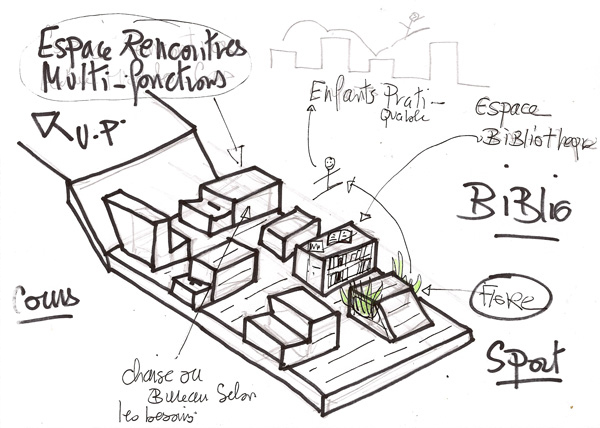 Espace Rencontres
Multi-fonctions
U.P.
Enfants Prati-
quable
Espace
Bibliotheque
BiBlio
Cours
Sport
chaise ou
Bureau selon
les besoins